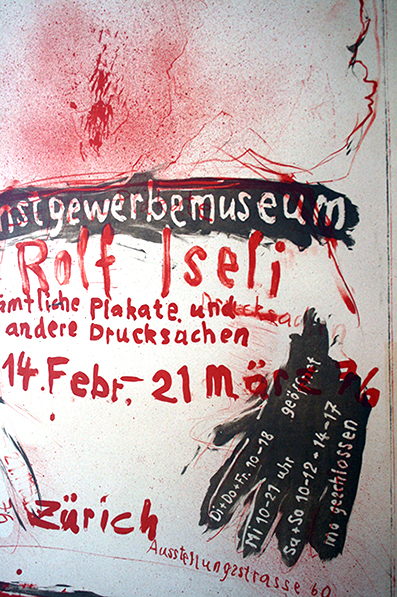 nstgewerbemuseum
Rolf Iseli
ämtliche Plakate und
andere Drucksachen
14. Febr. - 21 März 76
geöffnet
Di+Do+Fr. 10-18
Mi 10-21 Uhr
Sa+So 10-12+14-17
mo geschlossen
Zürich
Ausstellungsstrasse 60